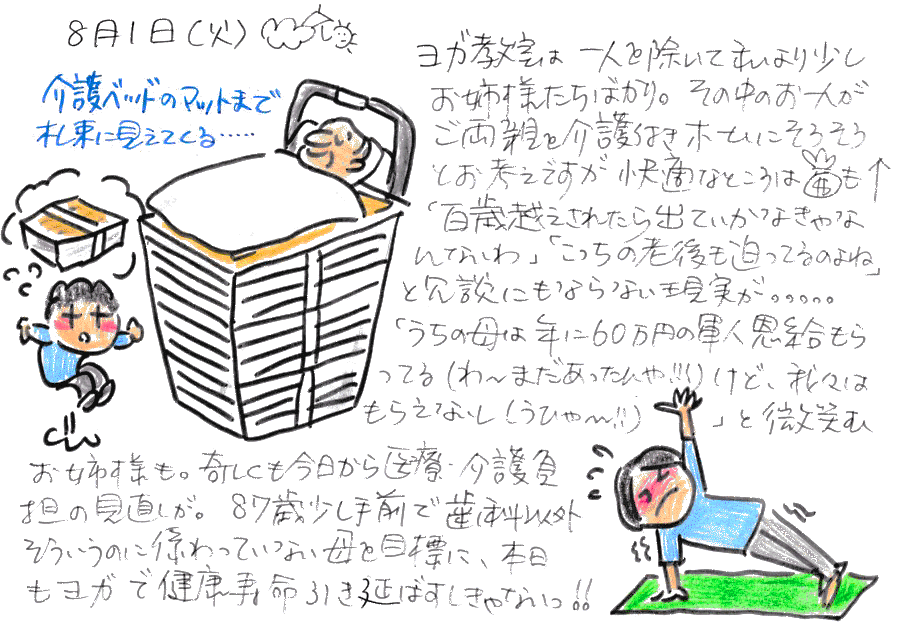 8月1日(火)
介護ベッドのマットまで
札束に見えてくる……
ヨガ教室は一人を除いて私より少し
お姉様たちばかり。その中のお一人が
ご両親を介護付きホームにそろそろ
とお考えですが快適なところは¥も↑
「百歳越えされたら出ていかなきゃな
んないわ」「こっちの老後も迫ってるのよね」
と冗談にもならない現実が。。。。。
「うちの母は年に60万円の軍人恩給もら
ってる(わ〜まだあったんや!!!)けど、我々は
もらえないし(うひゃ〜!!)」と微笑む
お姉様も。奇しくも今日から医療・介護負
担の見直しが。87歳少し手前で歯科以外
そういうのに係わっていない母を目標に、本日
もヨガで健康寿命引き延ばすしきゃないっ!!